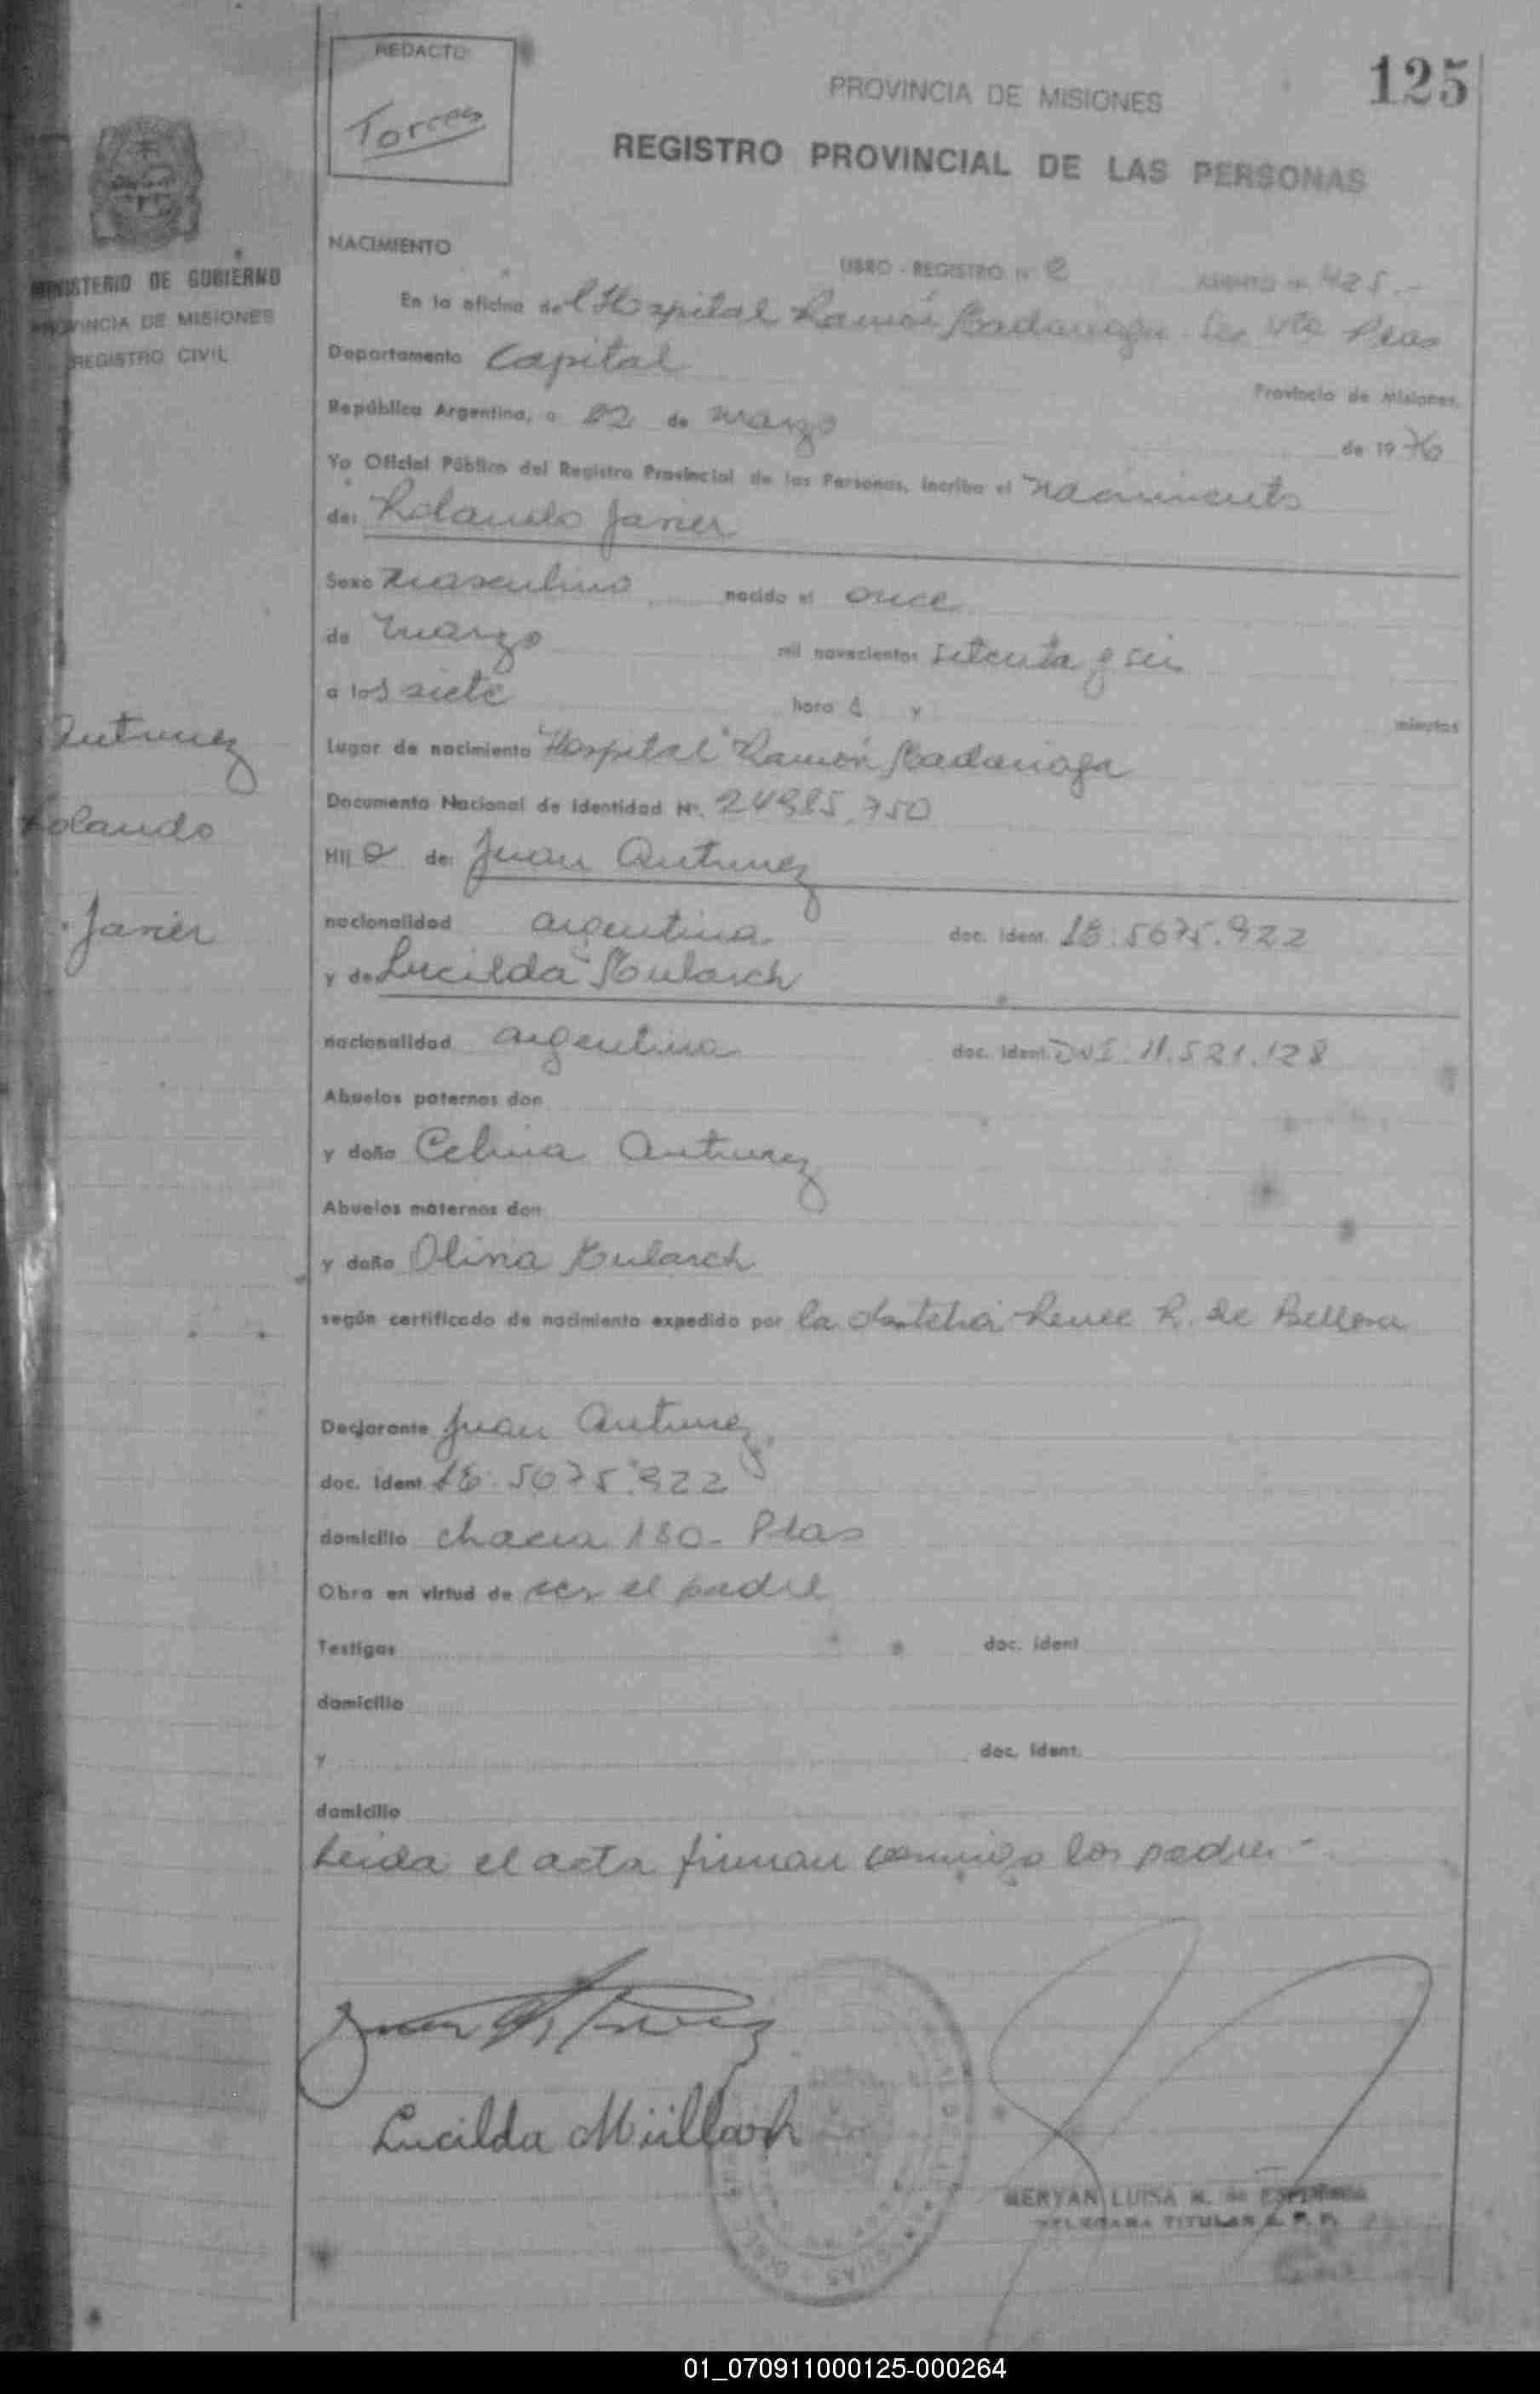 REDACTO
Torres
125
PROVINCIA DE MISIONES
REGISTRO PROVINCIAL DE LAS PERSONAS
MINISTERIO DE GOBIERNO
PROVINCIA DE MISIONES
REGISTRO CIVIL
NACIMIENTO
LIBRO - REGISTRO Nº 2 ASIENTO Nº 425.-
En la oficina del Hospital Ramón Madariaga
Departamento Capital
Provincia de Misiones,
República Argentina, a 22 de marzo de 1976
Yo Oficial Público del Registro Provincial de las Personas, incribo el Nacimiento
de: Rolando Javier
Sexo Masculino nacido el once
de marzo mil novecientos setenta y seis
a los siete hora s y minutos
Lugar de nacimiento Hospital "Ramón Madariaga
Documento Nacional de Identidad Nº. 24985.750
Hij o de: Juan Antunez
nacionalidad argentina doc. ident. LE. 5675.922
y de Lucilda Mularsch
nacionalidad argentina doc. ident. DNI. 11.521.128
Abuelos paternos don
y doña Celina Antunez
Abuelos maternos don
y doña Olina Mularsch
según certificado de nacimiento expedido por la Renee R. de
Declarante Juan Antunez
doc. ident LE. 5675.922
domicilio chacra 180- Pdas
Obra en virtud de ser el padre
Testigos doc. ident
domicilio
y doc. ident.
domicilio
Leida el acta firman conmigo los padres-
Antunez
Rolando
Javier
Lucilda Müllarsh
MERYAN LUISA M. de
DELEGADA TITULAR R. P. P.
01_070911000125-000264